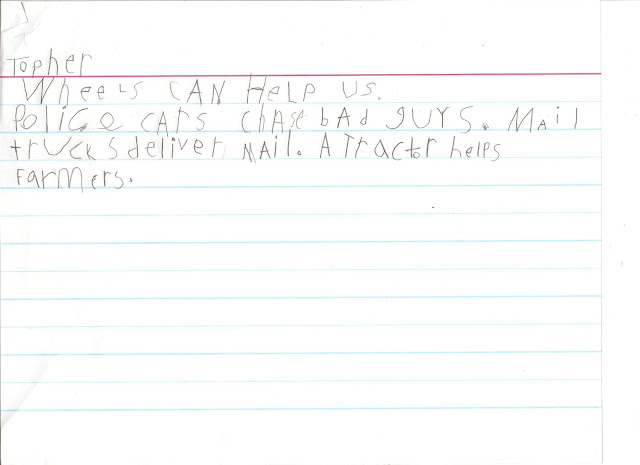 Topher
Wheels CAN HeLP US.
PoliCe CArs ChAse bAd gUYS. MAil
trUCKS deliver MAil. A TrActor helps
FarMers.